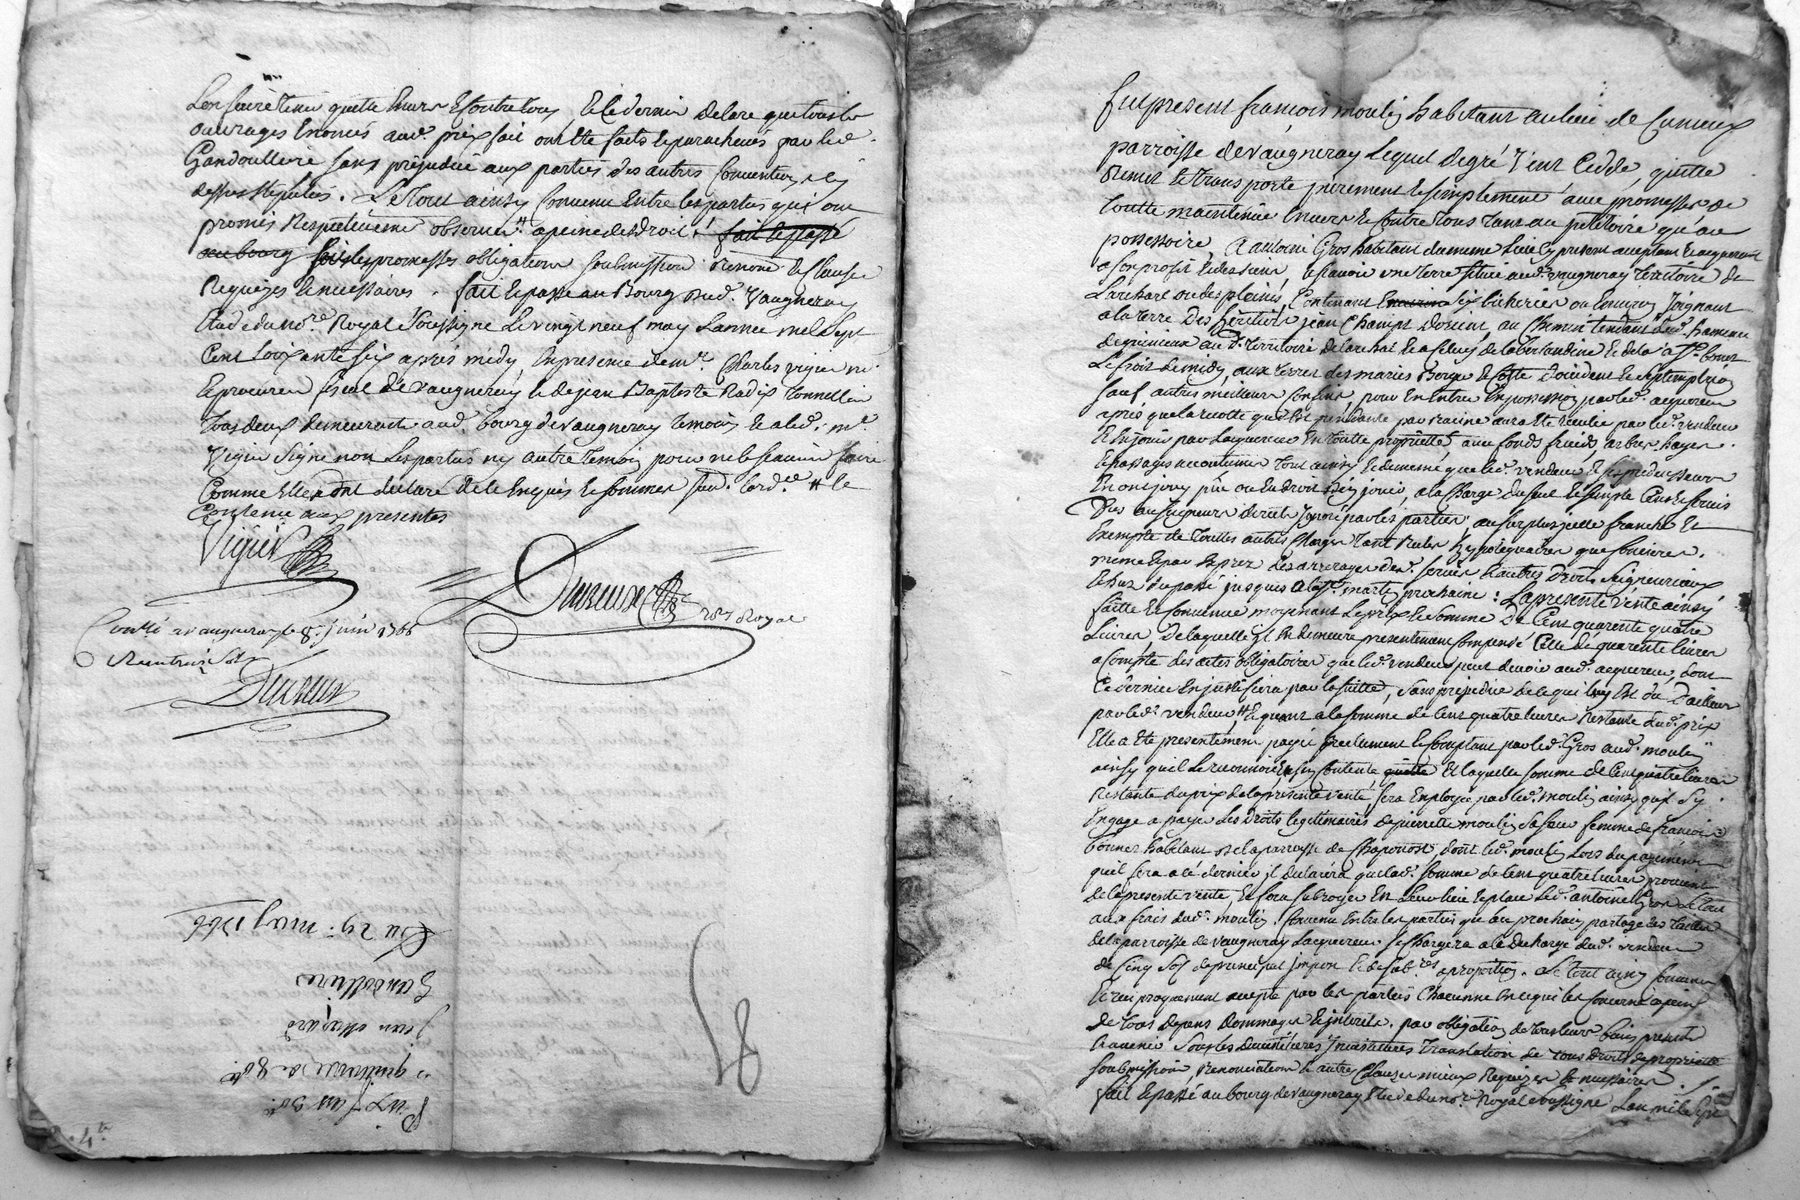 Lon faire tenir quitte Envers Et contre tous, Et le dernier declare que tous les
ouvrages Enoncés aud. prix fait ont Ete faits Et parachevés par led.
Gandoulliere sans préjudice aux parties des autres Convention cy
dessus stipulées. Le Tout ainsy Convenu Entre les parties qui ont
promis Respectivement observer # a peine de droit fait Et passé
au bourg promesses obligations soubmission Renon. Et Clauses
Requises Et necessaires. fait Et passé au Bourg dud. Vaugneray
Etude du no.re Royal Soussigné Le vingt neuf may L'année mil sept
Cent soixante six après midy, En presence de m.r Charles vigier
Et procureur fiscal de vaugneray Et de jean Baptiste Radix Tonnellier
Tous deux demeurants aud. bourg de vaugneray temoins Et a led. m.e
Vigier Signé non Les parties ny autre temoin pour ne le scavoir faire
Comme Elles ont declaré de ce Enquis Et sommés suiv. lord.ce # le
Contenu aux presentes
Vigier
Ducreux no.re Royal
Controllé a vaugneray le 8. juin 1766
Ducreux
Du 29. may 1766
Gandolliere
jean
quittance de
Prix fait
4.e
81
fut present françois moulin habitant au lieu de
parroisse de vaugneray Lequel de gré vend Cedde, quitte
Remet Et transporte purement Et simplement avec promesse de
toutte maintenue Envers Et contre tous tant au petitoire qu'au
possessoire, a antoine Gros habitant du meme Lieu Cy present acceptant Et acquerant
a son profit Et des siens, Scavoir une terre située aud. vaugneray territoire de
Larchat ou des pleines, Contenant Environ six bicherées ou Environ joignant
a la terre Des heritiers jean Champt d'orient, au Chemin tendant
au d. territoire de larchat
Le soir Et midy, aux terres des maries Berger Et Coste d'occident Et septemtrion
sauf autres meilleurs confins, pour En Entrer En possession par led. acquereur
après que la recolte qui Est pendante par racine aura Ete recüeillie par led. vendeur
Et En jouir par Lacquereur En toutte proprietté avec fonds fruicts, arbres hayes
Et passages accoutumés tout ainsy Et de meme que led. vendeur Et ses predecesseurs
En ont jouy pû ou En droit D'en jouir, a la Charge du seul Et simple Cens Et servis
Dûs au seigneur directe Ignoré par les parties, au surplus icelle franche Et
Exempte de touttes autres Charges tant Reelles hypotequaires que foncieres.
meme Et par Exprez des arrerages de. servis Et autres Droits Seigneuriaux
Echus du passé jusques a la st. martin prochaine: La presente vente ainsy
faitte Et Convenue moyenant Le prix Et somme De Cent quarente quatre
Livres de laquelle Il En demeure presentement Compensé Celle de quarente livres
a compte des actes obligatoires que led. vendeur peut devoir aud. acquereur, dont
Ce dernier En justifiera par la suitte, sans prejudice de ce qui luy Est dû D'ailleurs
par led. vendeur # Et quant a la somme de Cent quatre livres Restante dud. prix
Elle a Ete presentement payée Reellement Et Comptant par led. Gros aud. moulin
ainsy quil Le reconnoit En Est Contente quitte Et laquelle somme de Cent quatre livres
Restante du prix de la presente vente, sera Employée par led. moulin ainsy quil s'y
Engage a payer Les Droits legitimaires de pierrette moulin sa sœur femme de françois
bonner habitant de la parroisse de Chaponost, dont led. moulin Lors du payement
quil fera a ce dernier il declarera que lad. somme de Cent quatre livres provient
de la presente vente, Et sera subrogé En Leur lieu Et place led. antoine Gros Le tout
aux frais dud. moulin, Convenu Entre les parties qu'au prochain partage des tailles
de la parroisse de vaugneray Lacquereur se Chargera a la decharge dud. vendeur
de Cinq Sols de principal Impost Et des ac.res a proportion. Le Tout ainsy Convenu
Et reciproquement accepté par les parties Chacunne En ce qui les concerne a peine
de tous depens Dommages Et interets. par obligation de tous leurs biens presents
Et avenir sous les Investitures translation de tous droits de proprietté
soubmission Renonciation Et autres Clauses mieux Requises Et necessaires.
fait Et passé au bourg de vaugneray Etude du no.re Royal Soussigné Lan mil sept